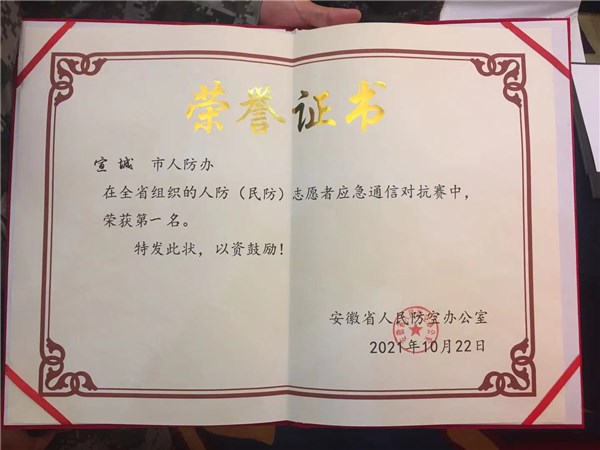 荣誉证书
宣城 市人防办
在全省组织的人防（民防）志愿者应急通信对抗赛中，
荣获第一名。
特发此状，以资鼓励！
安徽省人民防空办公室
2021年10月22日